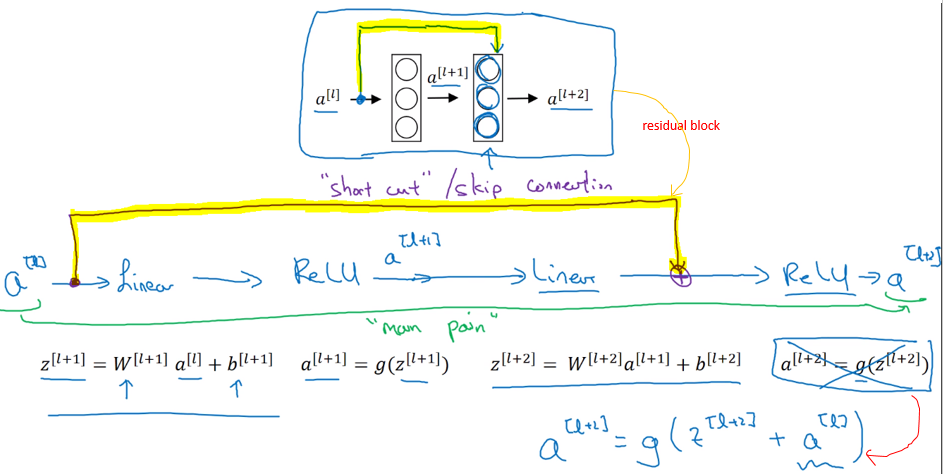 a^[l] a^[l+1] a^[l+2]
residual block
"short cut" / skip connection
a^[l] Linear ReLU a^[l+1] Linear + ReLU a^[l+2]
"main path"
z^[l+1] = W^[l+1] a^[l] + b^[l+1] a^[l+1] = g(z^[l+1]) z^[l+2] = W^[l+2]a^[l+1] + b^[l+2] a^[l+2] = g(z^[l+2])
a^[l+2] = g(z^[l+2] + a^[l])